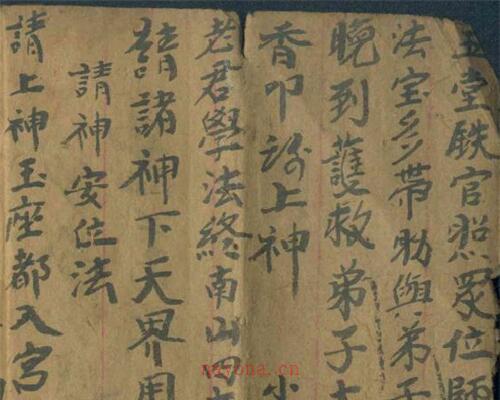 玉堂鉄官照眾位師
法宝多帶助與弟子
晚到護救弟子
香叩謝上神
老君學法終南山四
請諸神下天界用
請神安位法
請上神玉座都入宮
nayona.cn